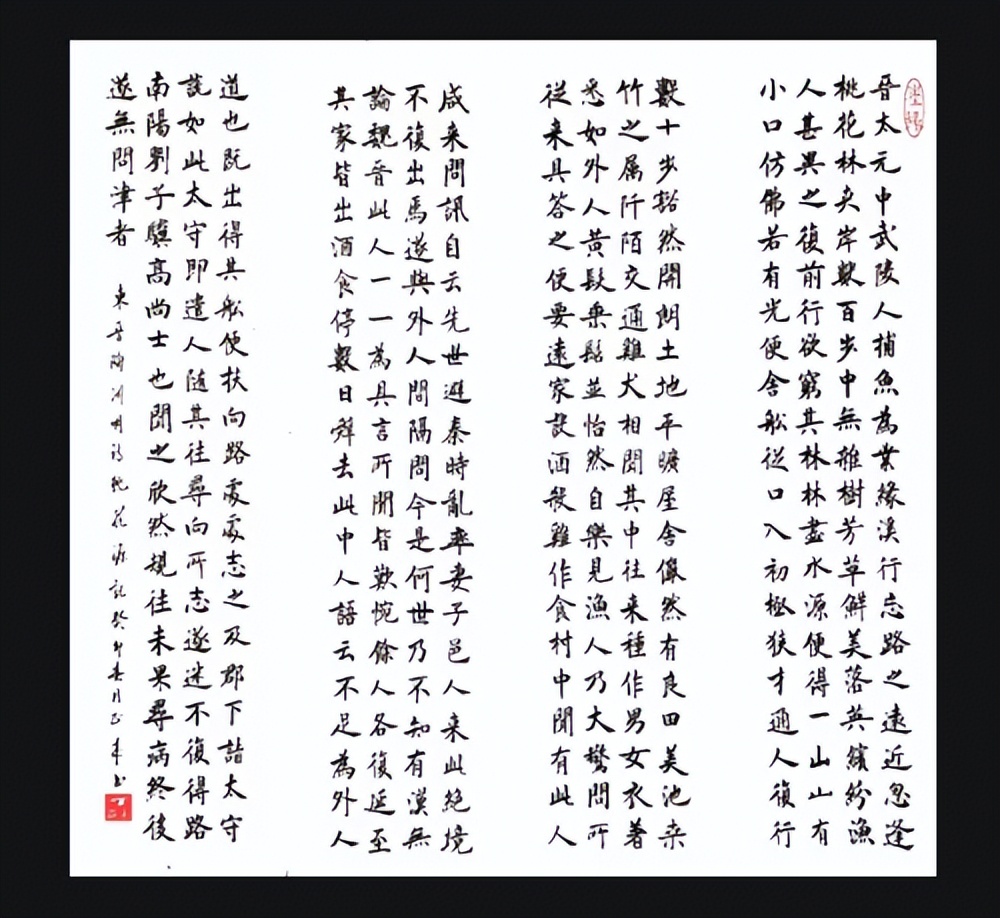 晉太元中武陵人捕魚為業緣溪行忘路之遠近忽逢
桃花林夹岸數百步中無雜樹芳草鮮美落英繽紛漁
人甚異之復前行欲窮其林林盡水源便得一山山有
小口仿佛若有光便舍船從口入初極狹才通人復行
數十步豁然開朗土地平曠屋舍儼然有良田美池桑
竹之属阡陌交通雞犬相聞其中往来種作男女衣著
悉如外人黄髮垂髫並怡然自樂見漁人乃大驚問所
從来具答之便要還家設酒殺雞作食村中聞有此人
咸来問訊自云先世避秦時亂率妻子邑人来此絕境
不復出焉遂與外人間隔問今是何世乃不知有漢無
論魏晉此人一一為具言所聞皆歎惋餘人各復延至
其家皆出酒食停數日辭去此中人語云不足為外人
道也既出得其船便扶向路處處志之及郡下詣太守
說如此太守即遣人隨其往尋向所志遂迷不復得路
南陽劉子驥高尚士也聞之欣然規往未果尋病終後
遂無問津者 東晉陶渊明詩桃花源記癸卯春月書